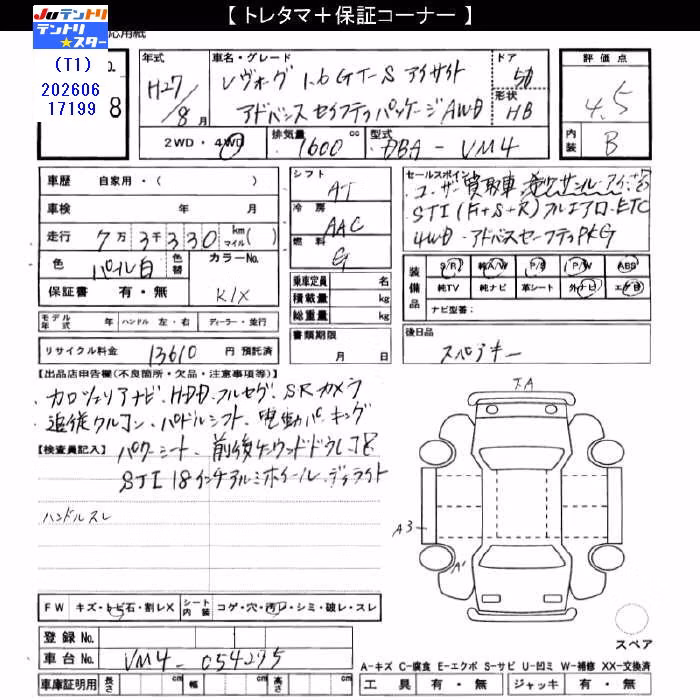 【 トレタマ＋保証コーナー 】
Juテントリ
テントリ★スター
(T1)
202606
17199
応用紙
No.
8
年式
H27
8月
車名・グレード
レヴォーグ 1.6 GT-S アイサイト
アドバンスセイフティパッケージ AWD
ドア
5
形状
HB
評価点
4.5
内装
B
2WD・4WD
排気量
1600 cc
型式
DBA-VM4
車歴 自家用・( )
車検 年 月
走行 7万3千330 km マイル( )
色
パール白
色替
カラーNo.
K1X
保証書 有・無
モデル年式 年 ハンドル 左・右 ディーラー・並行
リサイクル料金 13610 円 預託済
シフト
AT
冷房
AAC
燃料
G
乗車定員 名
積載量 kg
総重量 kg
書類期限
月 日
セールスポイント
ユーザー買取車
STI(F+S+R)フルエアロ・ETC
4WD・アドバンスセーフティPKG
装備品
S/R 純A/W P/S P/W ABS
純TV 純ナビ 革シート 外ナビ エアB
ナビ型番:
後日品
スペアキー
【出品店申告欄(不良箇所・欠品・注意事項等)】
・カロッツェリアナビ、HDD、フルセグ、SRカメラ
・追従クルコン、パドルシフト、電動パーキング
【検査員記入】
パワーシート、前後
STI 18インチアルミホイール、デイライト
ハンドルスレ
FW キズ・トビ石・割レX
シート内装 コゲ・穴・汚レ・シミ・破レ・スレ
登録No.
車台No. VM4-054295
車庫証明用 長さ cm 幅 cm 高さ cm
T.A
A3
A'
スペア
A-キズ C-腐食 E-エクボ S-サビ U-凹ミ W-補修 XX-交換済
工具 有・無 ジャッキ 有・無